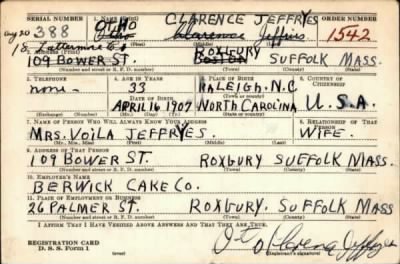 SERIAL NUMBER 1. NAME (Print) ORDER NUMBER
OTHO CLARENCE JEFFRYES
Aug 20 388 Clarence Jeffries 1542
(First) (Middle) (Last)
18 Lattermine
ROXBURY
109 BOWER ST. BOSTON SUFFOLK MASS.
(Number and street or R. F. D. number) (Town) (County) (State)
3. TELEPHONE 4. AGE IN YEARS 5. PLACE OF BIRTH 6. COUNTRY OF CITIZENSHIP
none - 33 RALEIGH, N.C.
DATE OF BIRTH (Town or county)
APRIL 16 1907 NORTH CAROLINA U.S.A.
(Mo.) (Day) (Yr.) (State or country)
7. NAME OF PERSON WHO WILL ALWAYS KNOW YOUR ADDRESS 8. RELATIONSHIP OF THAT PERSON
MRS. VOILA JEFFRYES. WIFE.
(Mr., Mrs., Miss) (First) (Middle) (Last)
9. ADDRESS OF THAT PERSON
109 BOWER ST. ROXBURY SUFFOLK MASS.
(Number and street or R. F. D. number) (Town) (County) (State)
10. EMPLOYER'S NAME
BERWICK CAKE CO.
11. PLACE OF EMPLOYMENT OR BUSINESS
26 PALMER ST. ROXBURY. SUFFOLK MASS
(Number and street or R. F. D. number) (Town) (County) (State)
I AFFIRM THAT I HAVE VERIFIED ABOVE ANSWERS AND THAT THEY ARE TRUE.
REGISTRATION CARD
D. S. S. Form 1 (over) Otho Clarence Jeffryes
(Registrant's signature)